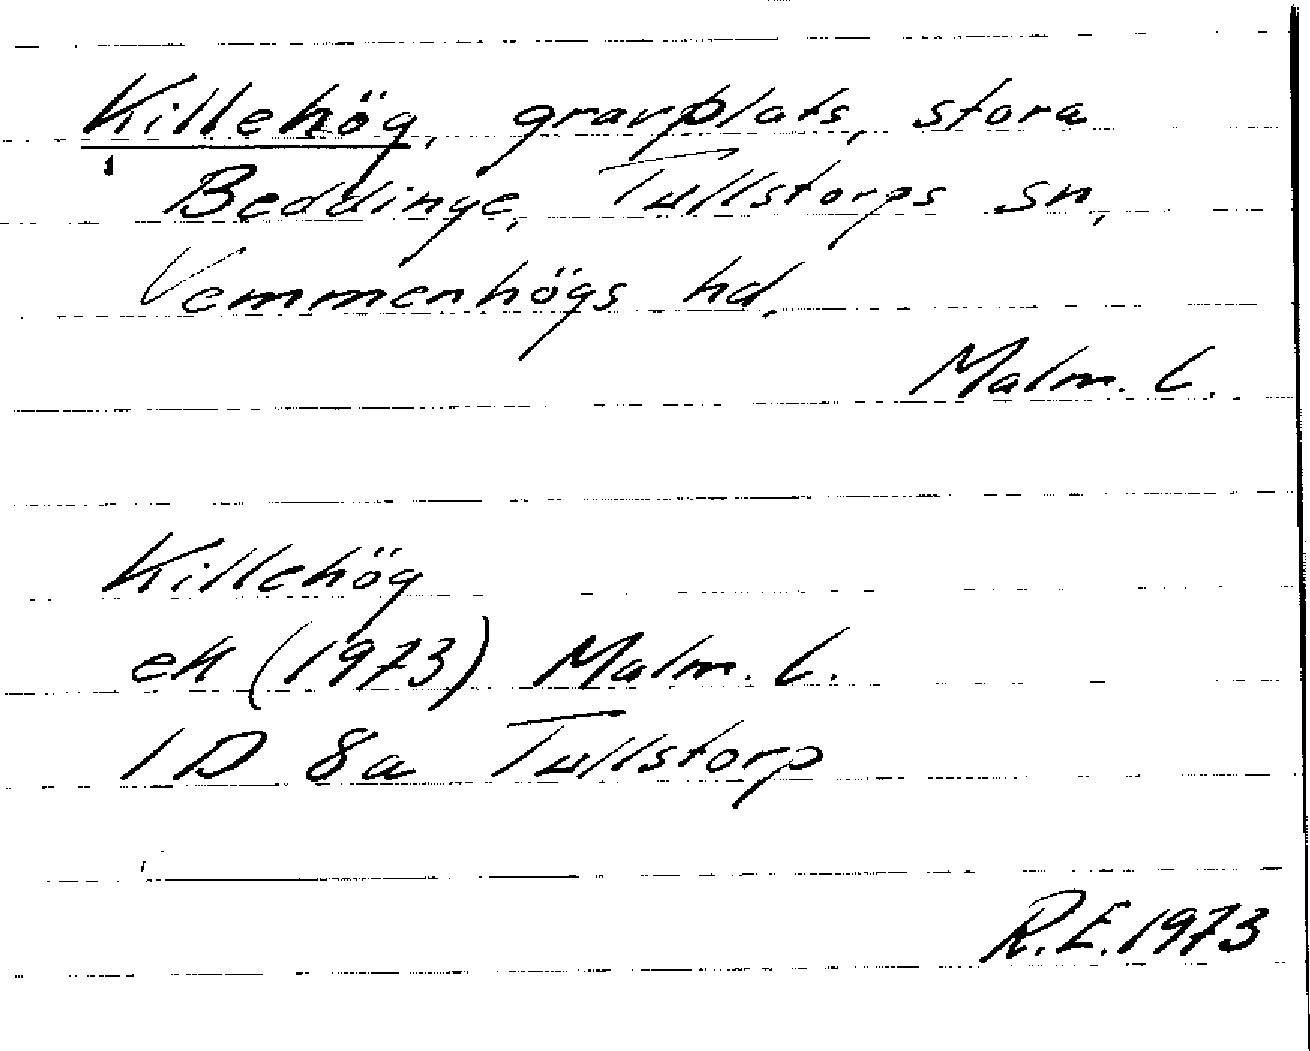 Killehög, gravplats, stora
Beddinge, Tullstorps sn,
Vemmenhögs hd,
Malm. l.
Killehög
ek (1973) Malm. l.
1D 8a Tullstorp
R.E. 1973